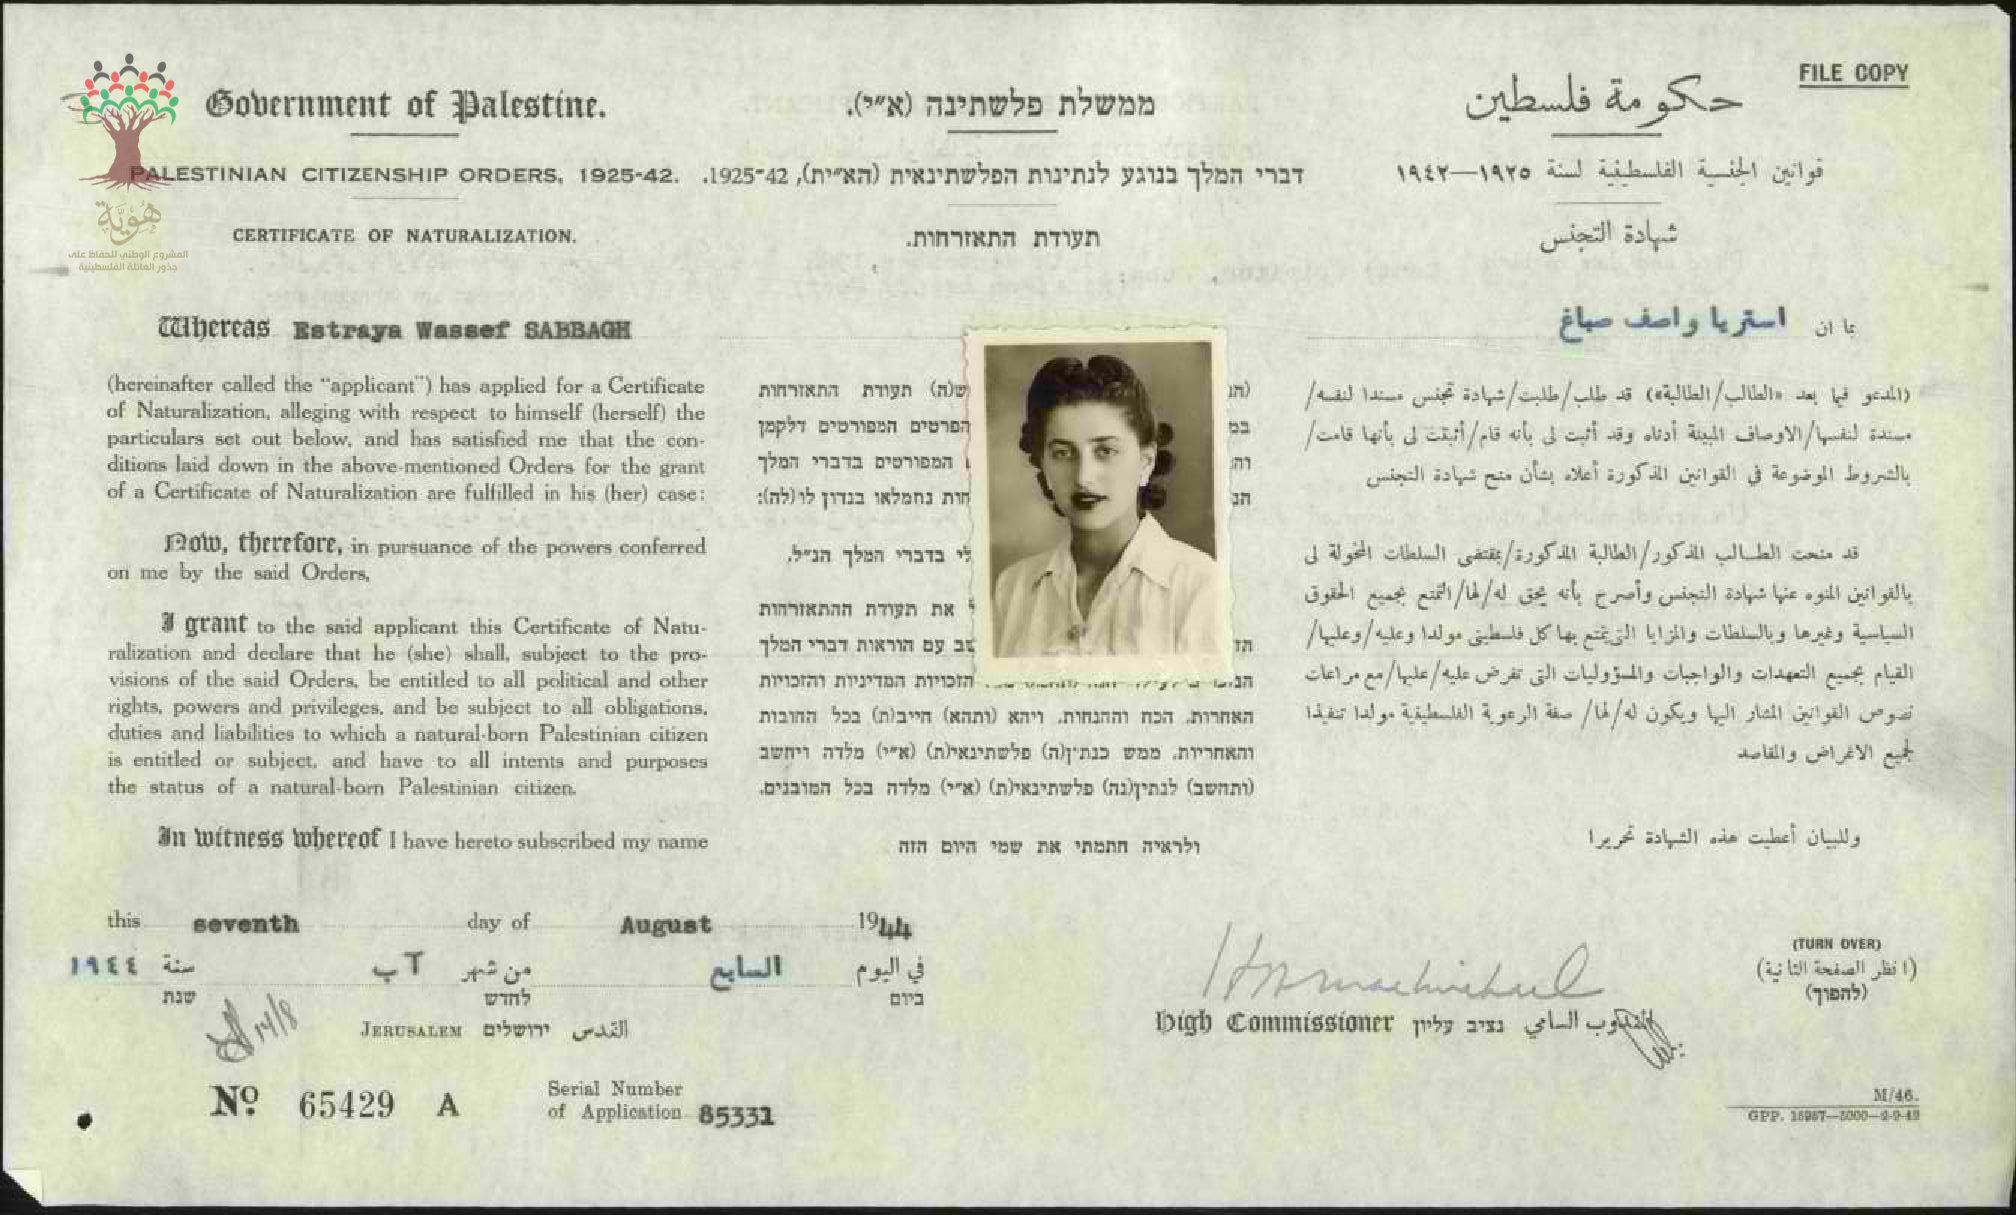 FILE COPY
Government of Palestine.
PALESTINIAN CITIZENSHIP ORDERS, 1925-42.
CERTIFICATE OF NATURALIZATION.
هُوِيَّة
المشروع الوطني للحفاظ على
جذور العائلة الفلسطينية
Whereas Estraya Wassef SABBAGH
(hereinafter called the "applicant") has applied for a Certificate
of Naturalization, alleging with respect to himself (herself) the
particulars set out below, and has satisfied me that the con-
ditions laid down in the above-mentioned Orders for the grant
of a Certificate of Naturalization are fulfilled in his (her) case:
Now, therefore, in pursuance of the powers conferred
on me by the said Orders,
I grant to the said applicant this Certificate of Natu-
ralization and declare that he (she) shall, subject to the pro-
visions of the said Orders, be entitled to all political and other
rights, powers and privileges, and be subject to all obligations,
duties and liabilities to which a natural-born Palestinian citizen
is entitled or subject, and have to all intents and purposes
the status of a natural-born Palestinian citizen.
In witness whereof I have hereto subscribed my name
ממשלת פלשתינה (א״י).
דברי המלך בנוגע לנתינות הפלשתינאית (הא״ית), 1925-42.
תעודת התאזרחות.
ש(ה) תעודת התאזרחות
הפרטים המפורטים דלקמן
המפורטים בדברי המלך
חות נתמלאו בנדון לו (לה):
לי בדברי המלך הנ״ל.
את תעודת ההתאזרחות
שב עם הוראות דברי המלך
הזכויות המדיניות והזכויות
האחרות, הכח וההנחות, ויהא (ותהא) חייב(ת) בכל החובות
והאחריות, ממש כנתין(ה) פלשתינאי(ת) (א״י) מלדה ויחשב
(ותחשב) לנתין(נה) פלשתינאי(ת) (א״י) מלדה בכל המובנים.
ולראיה חתמתי את שמי היום הזה
حكومة فلسطين
قوانين الجنسية الفلسطينية لسنة ١٩٢٥—١٩٤٢
شهادة التجنس
بما ان استريا واصف صباغ
(المدعو فيما بعد «الطالب/الطالبة») قد طلب/طلبت/شهادة تجنس مسندا لنفسه/
مسندة لنفسها/الاوصاف المبينة أدناه وقد أثبت لى بأنه قام/أثبتت لى بأنها قامت/
بالشروط الموضوعة في القوانين المذكورة أعلاه بشأن منح شهادة التجنس
قد منحت الطالب المذكور/الطالبة المذكورة/بمقتضى السلطات المخولة لى
بالقوانين المنوه عنها شهادة التجنس وأصرح بأنه يحق له/لها/التمتع بجميع الحقوق
السياسية وغيرها وبالسلطات والمزايا التى يتمتع بها كل فلسطينى مولدا وعليه/وعليها/
القيام بجميع التعهدات والواجبات والمسؤوليات التى تفرض عليه/عليها/مع مراعات
نصوص القوانين المشار اليها ويكون له/لها/ صفة الرعوية الفلسطينية مولدا تنفيذا
لجميع الاغراض والمقاصد
وللبيان أعطيت هذه الشهادة تحريرا
this seventh day of August 1944
في اليوم السابع من شهر آب سنة ١٩٤٤
ביום לחדש שנת
14/8
JERUSALEM ירושלים القدس
No. 65429 A
Serial Number
of Application 85331
High Commissioner נציב עליון المندوب السامي
(TURN OVER)
(انظر الصفحة الثانية)
(להפוך)
M/46.